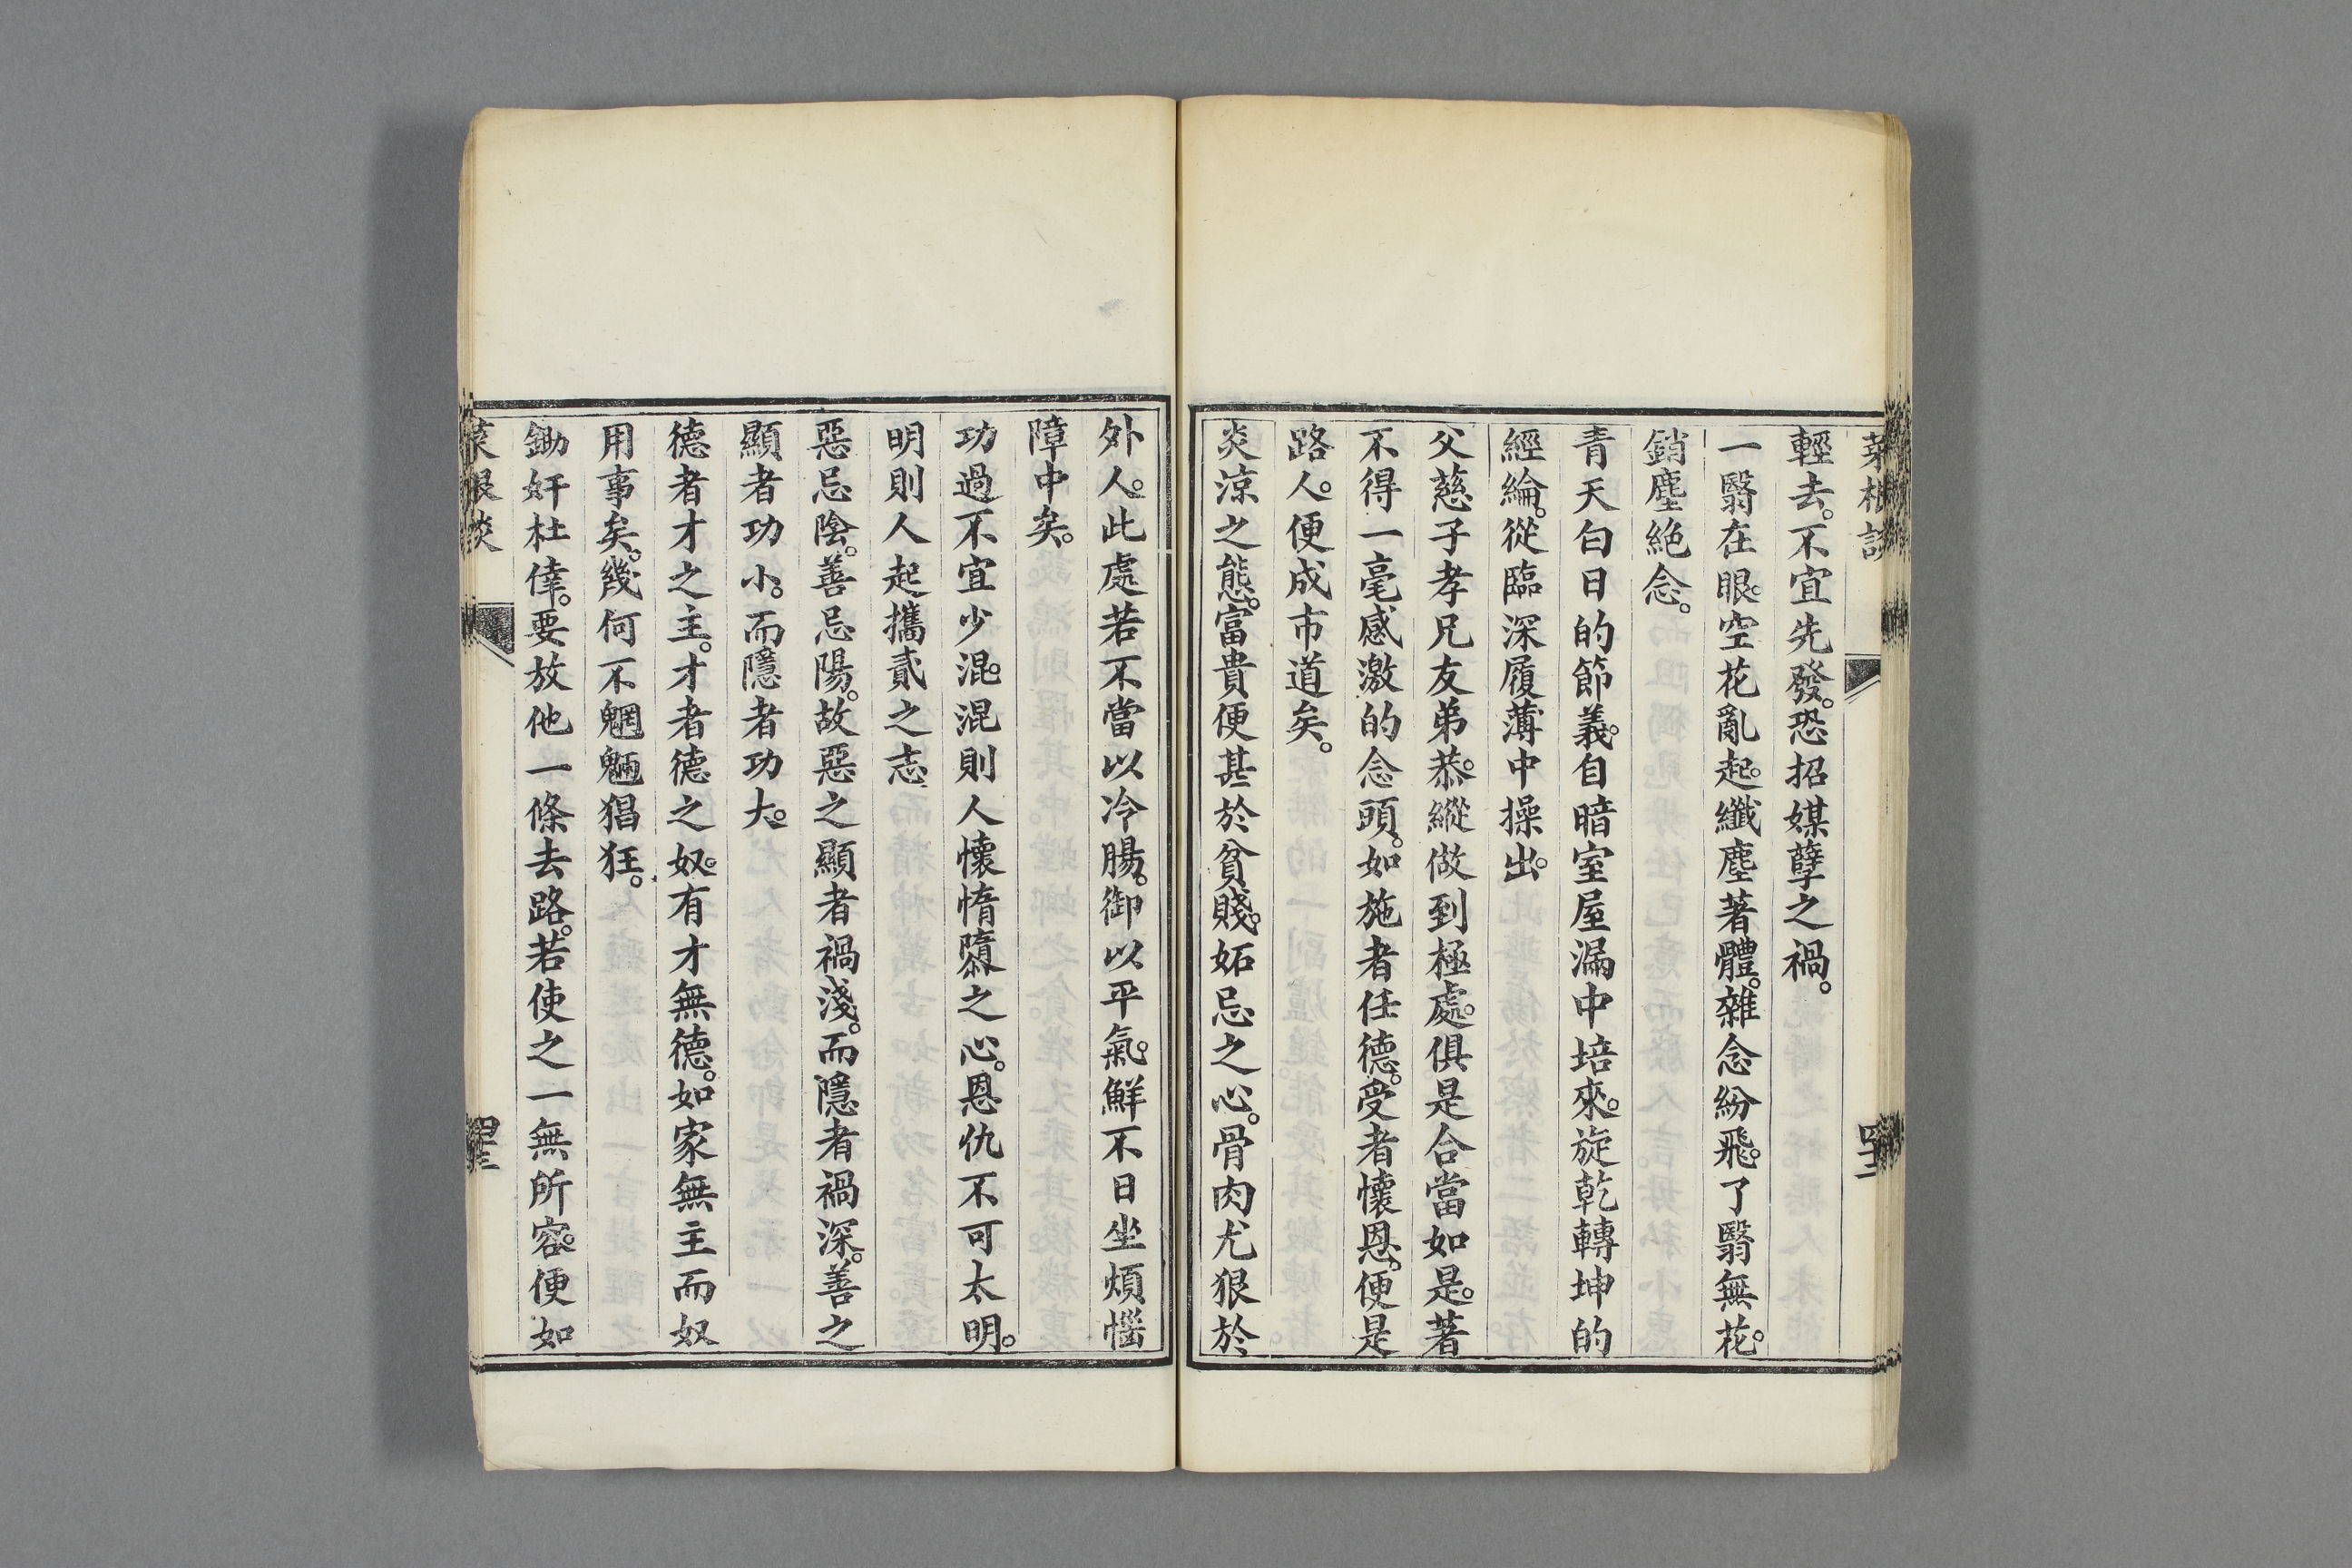 菜根談
四十二
輕去。不宜先發。恐招媒孽之禍。
一翳在眼。空花亂起。纖塵著體。雜念紛飛。了翳無花。
銷塵絕念。
青天白日的節義。自暗室屋漏中培來。旋乾轉坤的
經綸。從臨深履薄中操出。
父慈子孝兄友弟恭。縱做到極處。俱是合當如是。著
不得一毫感激的念頭。如施者任德。受者懷恩。便是
路人。便成市道矣。
炎涼之態。富貴便甚於貧賤。妬忌之心。骨肉尤狠於
外人。此處若不當以冷腸。御以平氣。鮮不日坐煩惱
障中矣。
功過不宜少混。混則人懷惰隳之心。恩仇不可太明。
明則人起攜貳之志
惡忌陰。善忌陽。故惡之顯者禍淺。而隱者禍深。善之
顯者功小。而隱者功大。
德者才之主。才者德之奴。有才無德。如家無主而奴
用事矣。幾何不魍魎猖狂。
鋤奸杜倖。要放他一條去路。若使之一無所容。便如
菜根談